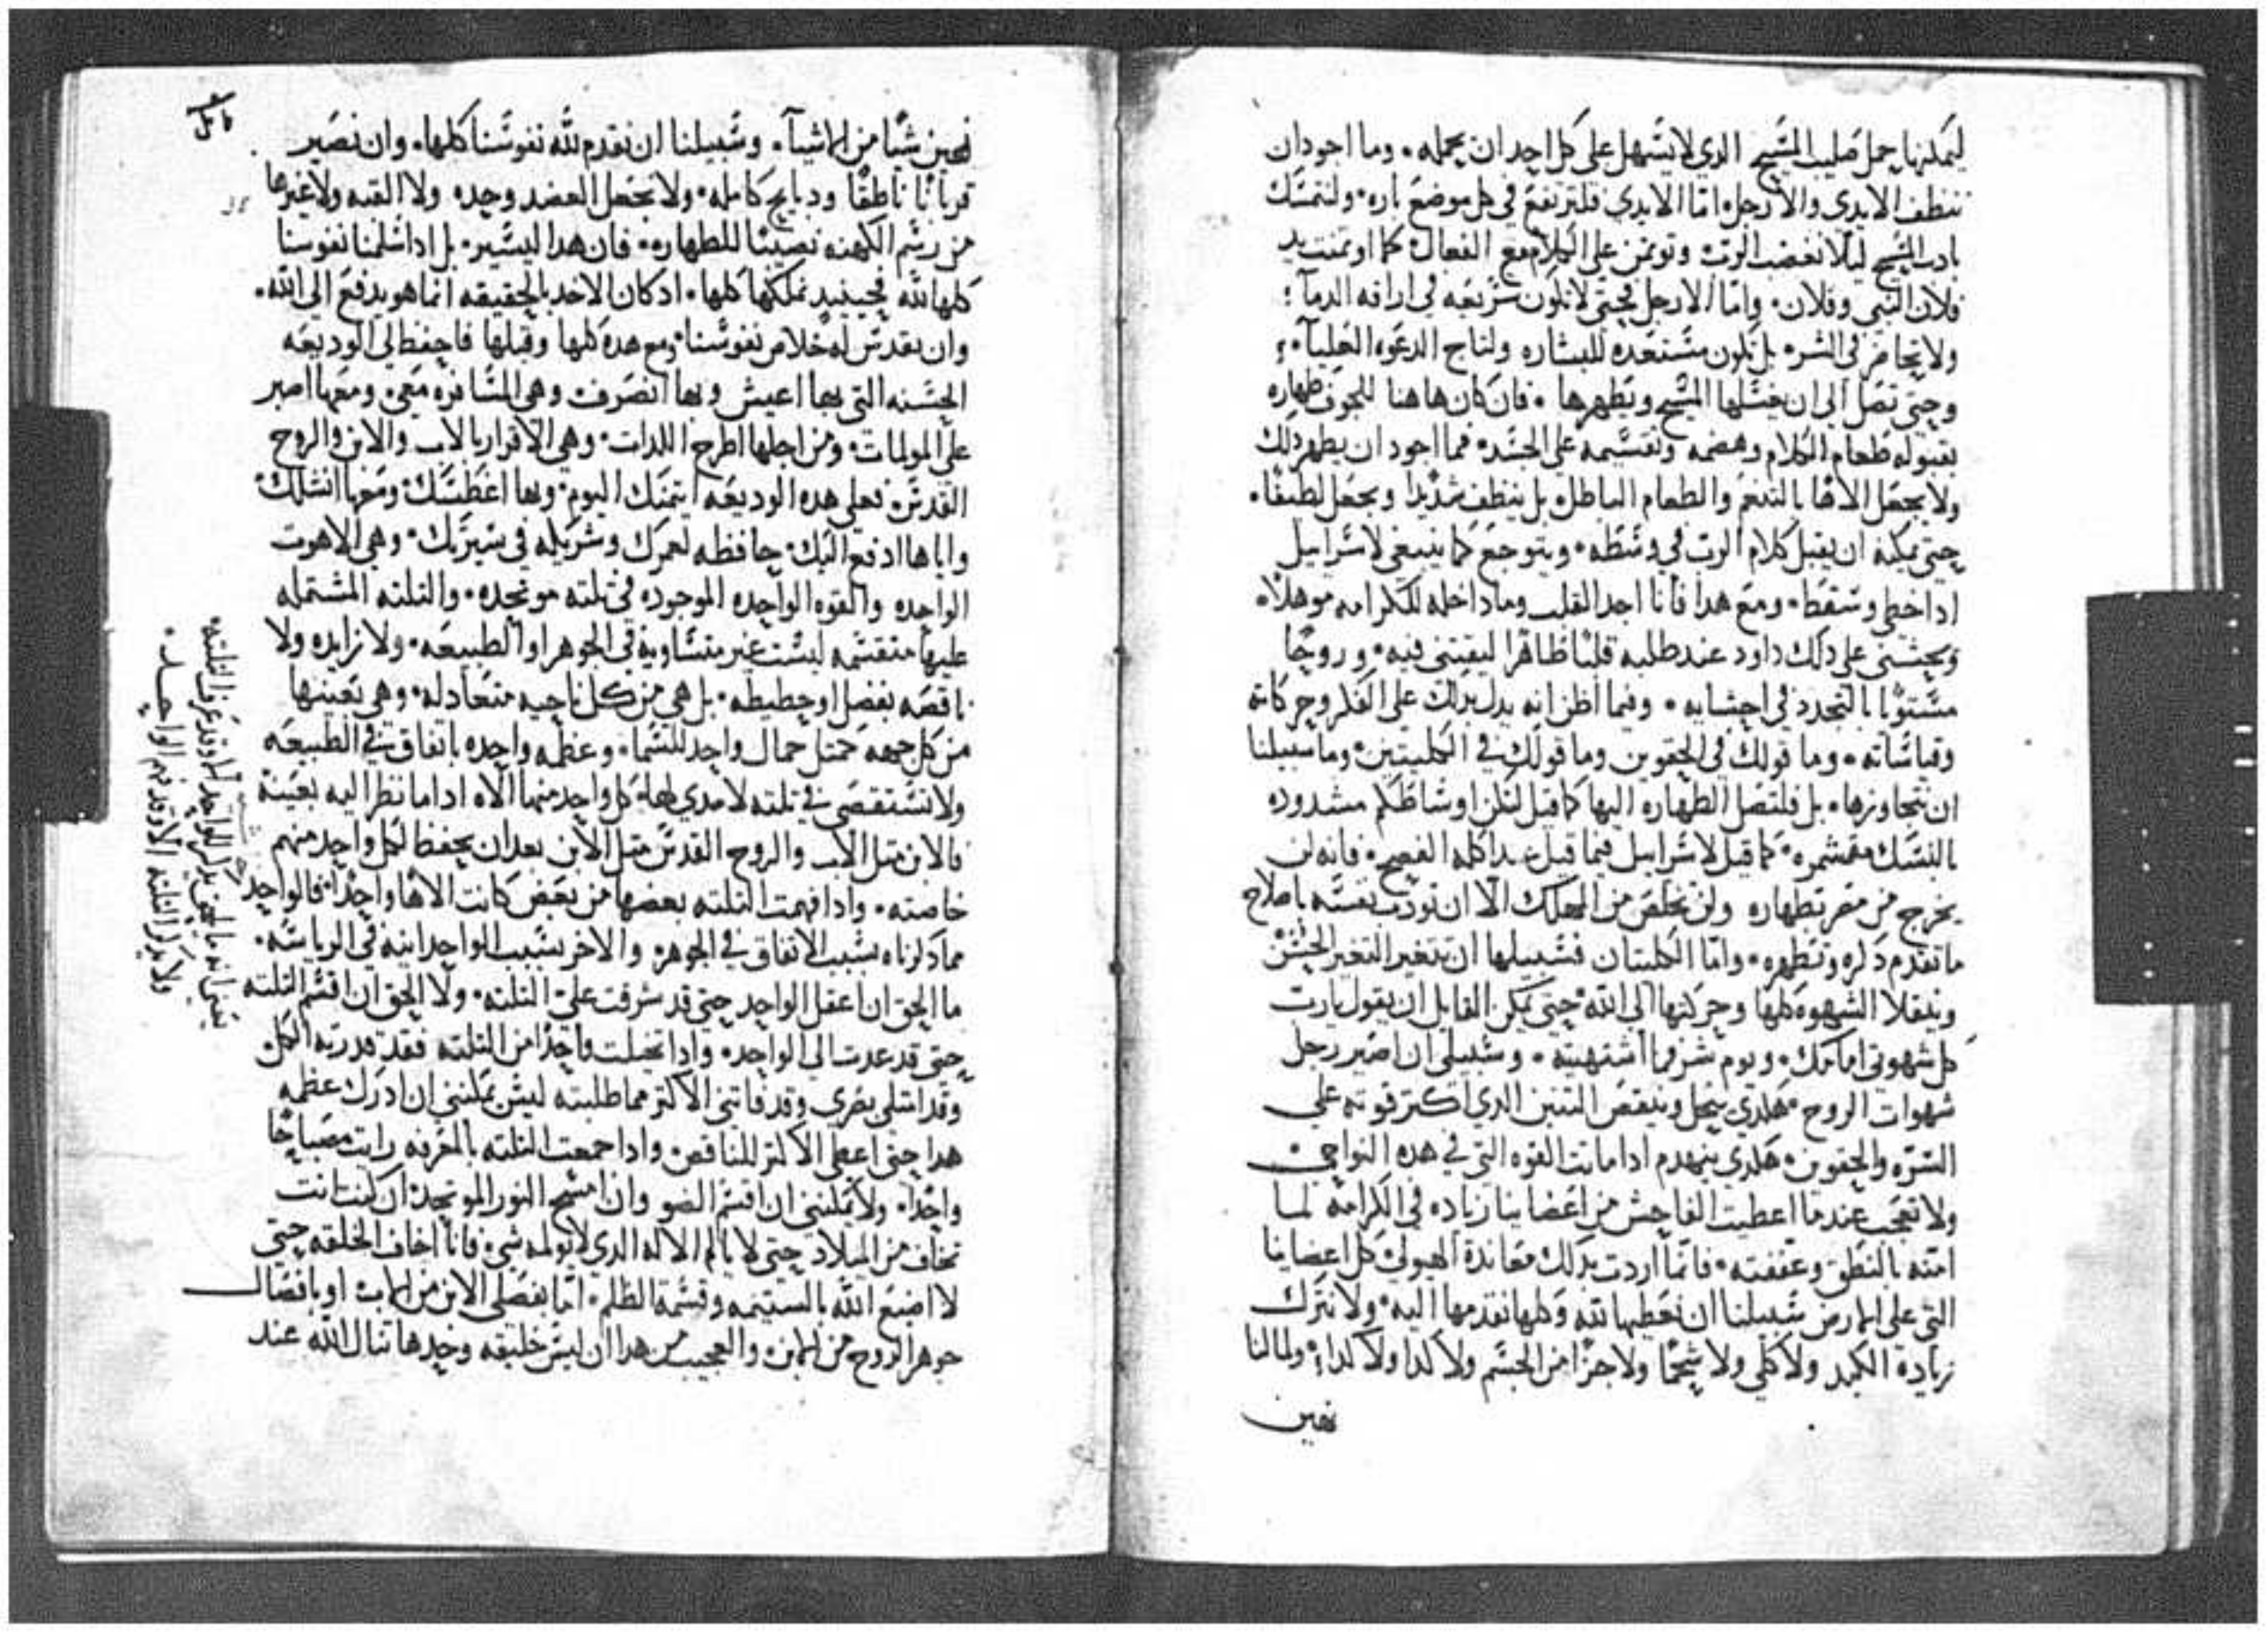 ليمكنها حمل صليب المسيح الدي لا يسهل على كل احد ان يحمله٠ وما اجود ان
ننظف الايدي والارجل اما الايدي فلترتفع في كل موضع باره٠ ولنمسك
بادب المسيح ليلا نغضب الرب وتوتمن على الكلام مع الفعال كما اوتمنت يد
فلان النبي وفلان٠ واما الارجل فحتى لا تكون سريعه في اراقه الدما
ولا تحاضر في الشر٠ بل تكون مستعده للبشاره ولناج الدعوه العليا
وحتى تصل الى ان يغسلها المسيح ويطهرها٠ فان كان هاهنا للجوف طهاره
بقبوله طعام الكلام وهضمه وتقسيمه على الجسد٠ فما اجود ان يطهر دلك
ولا يجعل الاها بالتنعم والطعام الباطل٠ بل ينظف شديدا ويجعل لطيفا٠
حتى يمكنه ان يقبل كلام الرب في وسطه٠ ويتوجع كما ينبغي لاسراييل
ادا خطي وسقط٠ ومع هدا فانا اجد القلب وما داخله للكرامه موهلا٠
ويحسنى على دلك داود عند طلبه قلبا طاهرا ليقتنى فيه٠ وروحا
مستويا بالتجدد في احشايه٠ وفيما اظن انه يدل بدلك على الفكر وحركاته
وقياساته٠ وما قولك في الحقوين وما قولك في الكليتين٠ وما سبيلنا
ان نتجاوزها٠ بل فلتصل الطهاره اليها كما قيل لتكن اوساطكم مشدوده
بالنسك متشمره٠ كما قيل لاسراييل فيما قيل عند اكله الفصح٠ فانه لن
يخرج من مصر بطهاره ولن يخلص من المهلك الا ان تودب نفسه باصلاح
ما تقدم دكره وتطهره٠ واما الكليتان فسبيلها ان تتغير التغير الحسن
وينقلا الشهوه كلها وحركتها الى الله٠ حتى يمكن القايل ان يقول يا رب
كل شهوتي امامك٠ ويوم شر فما اشتهيته٠ وسبيلي ان اصير رجل
شهوات الروح٠ هكدي ينحل وينقص التنين الدي اكتر قوته على
السره والحقوين٠ هكدي ينهدم ادا ماتت القوه التي في هده النواحي٠
ولا تعجب عندما اعطيت الفاحش من اعضاينا زياده في الكرامه لما
امته بالنطق وعففته٠ فانما اردت بدلك معانده الهيولي كل اعضاينا
التي على الارض سبيلنا ان نعطيها لله وكلها نقدمها اليه٠ ولا نترك
زيادة الكبد ولا كلى ولا شحما ولا جزا من الجسم ولا كدا ولا كدا٠ ولما لنا
نهين
نهين شيا من الاشيا٠ وسبيلنا ان نقدم لله نفوسنا كلها٠ وان نصير
قربانا ناطقا ودبايح كامله٠ ولا نجعل العضد وحده ولا القبه ولا غيرها
من رسم الكهنه نصيبا للطهاره٠ فان هدا ليسير٠ بل ادا سلمنا نفوسنا
كلها لله فحينيد نملكها كلها٠ اد كان الاخد بالحقيقه انما هو يدفع الى الله٠
وان يقدس له خلاص نفوسنا٠ ومع هده كلها وقبلها فاحفظ لي الوديعه
الحسنه التي بها اعيش وبها اتصرف وهي المسافره معي٠ ومعها اصبر
على المولمات٠ ومن اجلها اطرح اللدات٠ وهي الاقرار بالاب والابن والروح
القدس٠ فعلى هده الوديعه ايتمنك اليوم٠ وبها اغطسك٠ ومعها انشلك٠
واياها ادفع اليك٠ حافظه لعمرك وشريكه في سيرتك٠ وهي الاهوت
الواحده والقوه الواحده الموجوده في ثلته موتحده٠ والتلته المشتمله
عليها منقسمه ليست غير متساويه في الجوهر او الطبيعه٠ ولا زايده ولا
ناقصه بفضل او حطيطه٠ بل هي من كل ناحيه متعادله٠ وهي بعينها
من كل جهه كمتل جمال واحد للسما٠ وعظمه واحده باتفاق في الطبيعه
ولا تستقصى في تلته لا مدى لها٠ كل واحد منها الاه ادا ما نظر اليه بعينه
فالابن متل الاب والروح القدس متل الابن بعد ان يحفظ لكل واحد منهم
خاصته٠ وادا فهمت التلته بعضها من بعض كانت الاها واحدا٠ فالواحد
مما دكرناه بسبب الاتفاق في الجوهر والاخر بسبب الواحدانيه في الرياسه٠
ما الحق ان اعقل الواحد حتى قد شرفت على التلته٠ ولا الحق ان اقسم التلته
حتى قد عدت الى الواحد٠ وادا تخيلت واحدا من التلته فقد قدرته الكل
وقد امتلى بصري وقد فاتني الاكتر مما طلبته ليس يمكنني ان ادرك عظمه
هدا حتى اعطي الاكتر للناقص٠ وادا جمعت التلته بالمعرفه رايت مصباحا
واحدا٠ ولا يمكنني ان اقسم الضو وان امسح النور الموتحد٠ ان كنت انت
تخاف من الميلاد حتى لا يالم الالاه الدي لا يولمه شي٠ فانا اخاف الخلقه حتى
لا اضيع الله بالستيمه وقسمة الظلم٠ اما بفصلي الابن من الاب٠ او بافصال
جوهر الروح من الابن٠ والعجيب من هدا ان ليس خليقه وحدها تنال الله عند
يعني انه بالحق يدكر الواحد الا وقد عرف التلته٠
ولا يدكر التلته الا وقد فهم الواحد٠